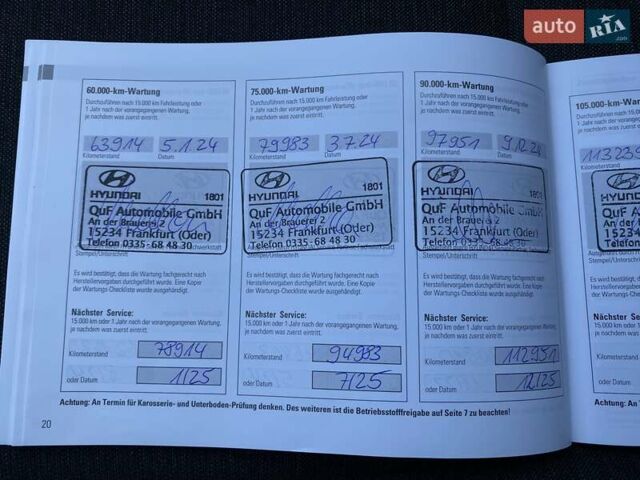 auto RIA.com
60.000-km-Wartung
Durchzuführen nach 15.000 km Fahrleistung oder
1 Jahr nach der vorangegangenen Wartung,
je nachdem was zuerst eintritt.
63914 5.1.24
Kilometerstand Datum
HYUNDAI 1801
QuF Automobile GmbH
An der Brauerei 2
15234 Frankfurt (Oder)
Telefon 0335-68 48 30
Stempel/Unterschrift
Es wird bestätigt, dass die Wartung fachgerecht nach
Herstellervorgaben durchgeführt wurde. Eine Kopie
der Wartungs-Checkliste wurde ausgehändigt.
Nächster Service:
15.000 km oder 1 Jahr nach der vorangegangenen Wartung,
je nachdem was zuerst eintritt.
Kilometerstand 78914
oder Datum 1/25
75.000-km-Wartung
Durchzuführen nach 15.000 km Fahrleistung oder
1 Jahr nach der vorangegangenen Wartung,
je nachdem was zuerst eintritt.
79983 3.7.24
Kilometerstand Datum
HYUNDAI 1801
QuF Automobile GmbH
An der Brauerei 2
15234 Frankfurt (Oder)
Telefon 0335-68 48 30
Stempel/Unterschrift
Es wird bestätigt, dass die Wartung fachgerecht nach
Herstellervorgaben durchgeführt wurde. Eine Kopie
der Wartungs-Checkliste wurde ausgehändigt.
Nächster Service:
15.000 km oder 1 Jahr nach der vorangegangenen Wartung,
je nachdem was zuerst eintritt.
Kilometerstand 94983
oder Datum 7/25
90.000-km-Wartung
Durchzuführen nach 15.000 km Fahrleistung oder
1 Jahr nach der vorangegangenen Wartung,
je nachdem was zuerst eintritt.
97951 9.12.24
Kilometerstand Datum
HYUNDAI 1801
QuF Automobile GmbH
An der Brauerei 2
15234 Frankfurt (Oder)
Telefon 0335-68 48 30
Stempel/Unterschrift
Es wird bestätigt, dass die Wartung fachgerecht nach
Herstellervorgaben durchgeführt wurde. Eine Kopie
der Wartungs-Checkliste wurde ausgehändigt.
Nächster Service:
15.000 km oder 1 Jahr nach der vorangegangenen Wartung,
je nachdem was zuerst eintritt.
Kilometerstand 112951
oder Datum 12/25
Achtung: An Termin für Karosserie- und Unterboden-Prüfung denken. Des weiteren ist die Betriebsstofffreigabe auf Seite 7 zu beachten!
20
105.000-km-
Durchzuführen nach
1 Jahr nach der
je nachdem was
113239
Kilometerstand
HYUNDAI
QuF Auto
An der Br
15234 Fra
Telefon 0
Stempel/Unterschrift
Es wird bestätigt,
Herstellervorgaben
der Wartungs-Che
Nächster Ser
15.000 km oder 1
je nachdem was
Kilometerstand
oder Datum
Achtung: An Te